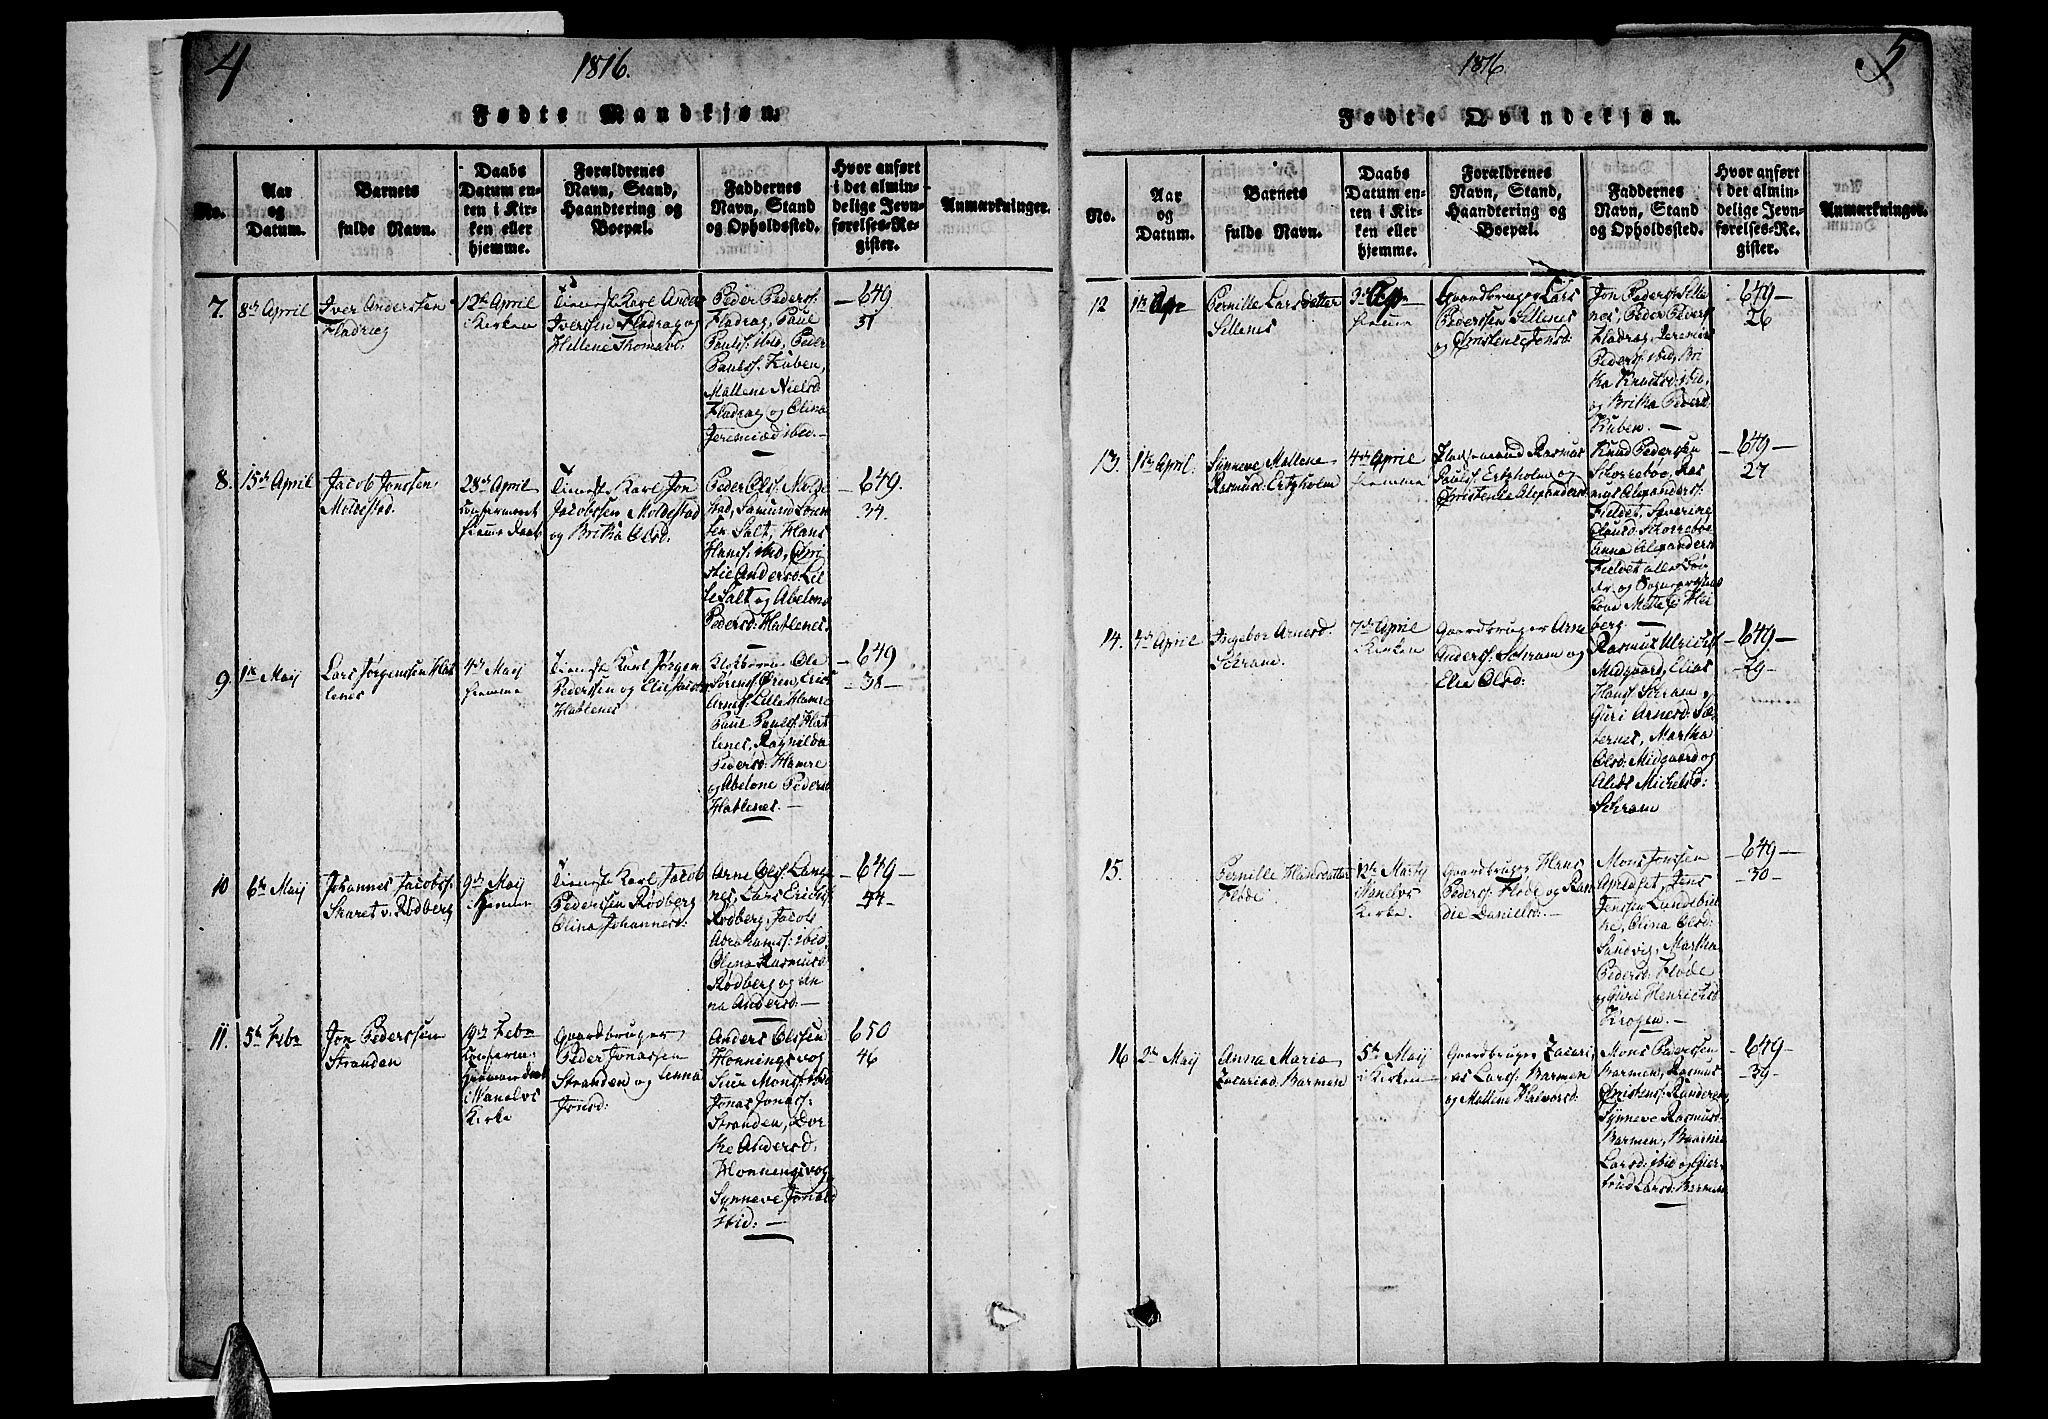 4
1816.
Fødte Mandkjøn.
No.
Aar
og
Datum.
Barnets
fulde Navn.
Daabs
Datum en-
ten i Kir-
ken eller
hjemme.
Forældrenes
Navn, Stand,
Haandtering og
Boepæl.
Faddernes
Navn, Stand
og Opholdssted.
Hvor anført
i det almin-
delige Jevn-
førelses-Re-
gister.
Anmærkninger.
7.
8de April
Iver Anderssen
Fladrag
12te April
i Kirken
Tieneste Karl Anders
Iverssen Fladrag og
Hellene Thomasd:
Peder Pederss:
Fladrag, Paul
Paulss: ibid, Peder
Paulss. Kuben,
Mallene Nielsd:
Fladrag og Olina
Jeremiæd ibid.—
—649
31
8.
15de April
Jacob Jonssen
Moldestad.
28de April
Confirmeret
hiemme Daab
Tieneste Karl Jon
Jacobssen Moldestad
og Britha Olsd:
Peder Olss. Molde
stad, Samund
Salt, Hans
Hanss. ibid, Chri
stie Andersd: Lil
le Salt og Abelone
Pedersd: Hatlenes.
—649.
34.
9.
1te Maij
Lars Jørgenssen Hat
lenes
4de Maij
hiemme
Tieneste Karl Jørgen
Pederssen og Elie Jacobsd:
Hatlenes
Klokkeren Ole
Sørenss. Eren, Erich
Arness. Lille Hamre
Paul Paulss. Hat
lenes, Ragnilda
Pedersd: Hamre
og Abelone Pedersd
Hatlenes.—
—649
—38—
10
6te Maij
Johannes Jacobss:
Skaret v. Rødberg
9de Maij
hiemme
Tieneste Karl Jacob
Pederssen Rødberg
Olina Johannesd:
Arne Olss. Lange
nes, Lars Erichss.
Rødberg, Jacob
Abrahamss: ibid
Olina Rasmusd:
Rødberg og An
na Andersd:—
—649—
44—
11.
5te Febr
Jon Pederssen
Stranden
19de Febr
Confirm:
hiemme daab
i Wanelvs
Kirke
Gaardbruger
Peder Jonassen
Stranden og Lenna
Jonsd:
Anders Olssen
Honningsvog
Siur Monss: ibid
Jonas Jonass:
Stranden, Dor
the Andersd:
Honningsvog
Synneve Jonasd
ibid:—
650
46
1816
5
Fødte Qvindekjøn.
No.
Aar
og
Datum.
Barnets
fulde Navn.
Daabs
Datum en-
ten i Kir-
ken eller
hjemme.
Forældrenes
Navn, Stand,
Haandtering og
Boepæl.
Faddernes
Navn, Stand
og Opholdssted.
Hvor anført
i det almin-
delige Jevn-
førelses-Re-
gister.
Anmærkninger.
12
1te Apr
Pernille Larsdatter
Sellenes
3de Apr
hiemme
Gaardbruger Lars
Pederssen Sellenes
og Christense Jonsd:
Jon Pederss. Selle
nes, Peder Pederss
Fladrag, Jeremias
Pederss: ibid, Bri
tha Knudsd: ibid,
og Britha Pedersd
Kuben.—
—649—
26
13.
1te April
Synneve Mallena
Rasmusd: Ertzholm
4de April
hiemme
Rasmus
Paulss. Ertzholm og
Christenke Alexandersd:
Knud Pederssen
Skorrebøe, Ras
mus Alexanderss:
Fieldet, Severine
Skorrebøe
Anna Alexandersd
Fieldet alle
og
Mette Hei
berg.—
—649—
27
14.
4de April
Ingebor Arnesd:
Schram.
7de April
i Kirken
Gaardbruger Arne
Anderss. Schram og
Elie Olsd:
Rasmus Ulrichss.
Midgaard, Elias
Hanss. Schram
Guri Arnesd: Sæ
ternes, Martha
Olsd: Midgaard og
Alids Michelsd:
Schram
—649—
—29—
15.
Pernille Hansdatter
Flode
12te Martij
i Wanelvs
Kirke.
Gaardbruger Hans
Pederss: Flode og Ran
die Danielsd:—
Mons Jonssen
Aprædset, Jens
Jenssen Lundebrek
ke, Olina Olsd:
Sandvig, Marthe
Pedersd: Flode
og Guri Henrichsd
Krogen.—
—649—
—30—
16
2de Maij
Anna Maria
Zacariad: Barmen
5te Maij
i Kirken
Gaardbruger Zacari
as Larss: Barmen
og Mallene Halvorsd:
Mons Pederssen
Barmen, Rasmus
Christenss: Runderem
Synneve Rasmusd
Barmen,
Larsd: ibid og Gier
trud Larsd: Barmen
—649—
—39—